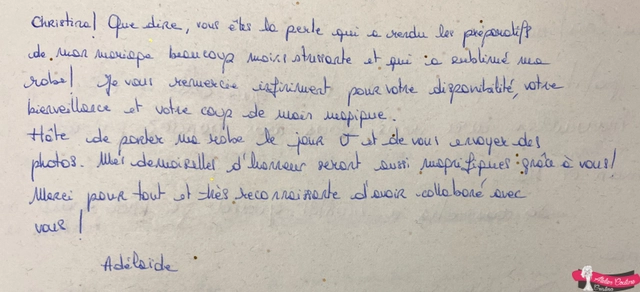 Christina! Que dire, vous êtes la perle qui a rendu les préparatifs
de mon mariage beaucoup moins stressante et qui a sublimé ma
robe! Je vous remercie infiniment pour votre disponibilité, votre
bienveillance et votre coup de main magique.
Hâte de porter ma robe le jour J et de vous envoyer des
photos. Mes demoiselles d'honneur seront aussi magnifiques grâce à vous!
Merci pour tout et très reconnaissante d'avoir collaboré avec
vous!
Adélaïde